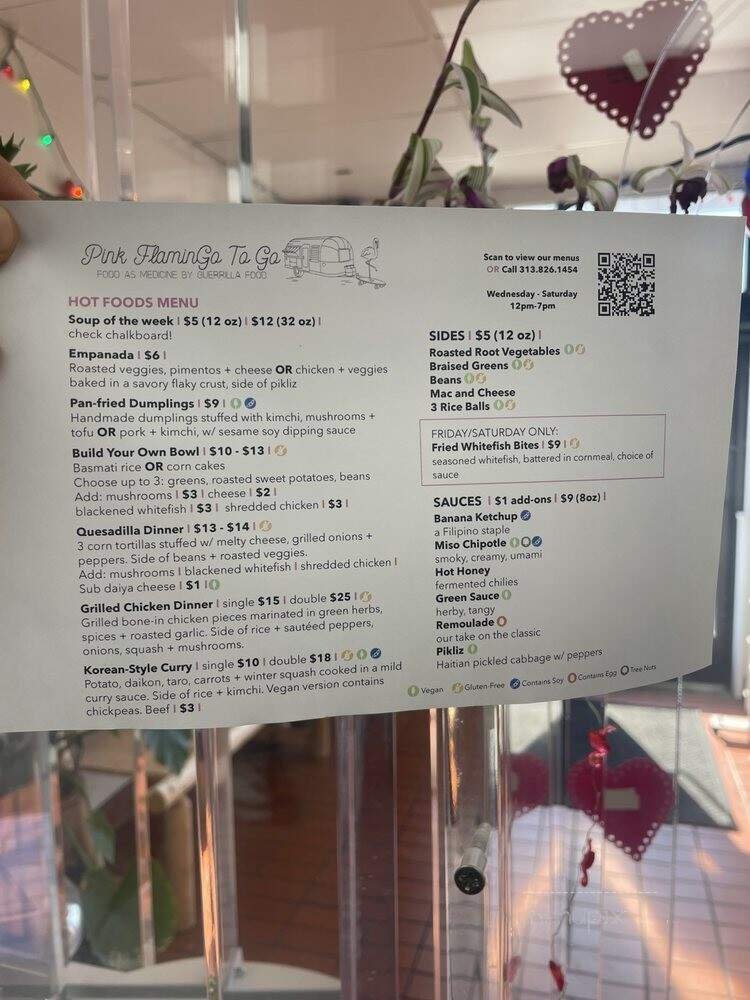 Pink FlaminGo To Go
FOOD AS MEDICINE BY GUERRILLA FOOD
Scan to view our menus
OR Call 313.826.1454
Wednesday - Saturday
12pm-7pm
HOT FOODS MENU
Soup of the week | $5 (12 oz) | $12 (32 oz) |
check chalkboard!
Empanada | $6 |
Roasted veggies, pimentos + cheese OR chicken + veggies
baked in a savory flaky crust, side of pikliz
Pan-fried Dumplings | $9 |
Handmade dumplings stuffed with kimchi, mushrooms +
tofu OR pork + kimchi, w/ sesame soy dipping sauce
Build Your Own Bowl | $10 - $13 |
Basmati rice OR corn cakes
Choose up to 3: greens, roasted sweet potatoes, beans
Add: mushrooms | $3 | cheese | $2 |
blackened whitefish | $3 | shredded chicken | $3 |
Quesadilla Dinner | $13 - $14 |
3 corn tortillas stuffed w/ melty cheese, grilled onions +
peppers. Side of beans + roasted veggies.
Add: mushrooms | blackened whitefish | shredded chicken |
Sub daiya cheese | $1 |
Grilled Chicken Dinner | single $15 | double $25 |
Grilled bone-in chicken pieces marinated in green herbs,
spices + roasted garlic. Side of rice + sautéed peppers,
onions, squash + mushrooms.
Korean-Style Curry | single $10 | double $18 |
Potato, daikon, taro, carrots + winter squash cooked in a mild
curry sauce. Side of rice + kimchi. Vegan version contains
chickpeas. Beef | $3 |
SIDES | $5 (12 oz) |
Roasted Root Vegetables
Braised Greens
Beans
Mac and Cheese
3 Rice Balls
FRIDAY/SATURDAY ONLY:
Fried Whitefish Bites | $9 |
seasoned whitefish, battered in cornmeal, choice of
sauce
SAUCES | $1 add-ons | $9 (8oz) |
Banana Ketchup
a Filipino staple
Miso Chipotle
smoky, creamy, umami
Hot Honey
fermented chilies
Green Sauce
herby, tangy
Remoulade
our take on the classic
Pikliz
Haitian pickled cabbage w/ peppers
Vegan Gluten-Free Contains Soy Contains Egg Tree Nuts